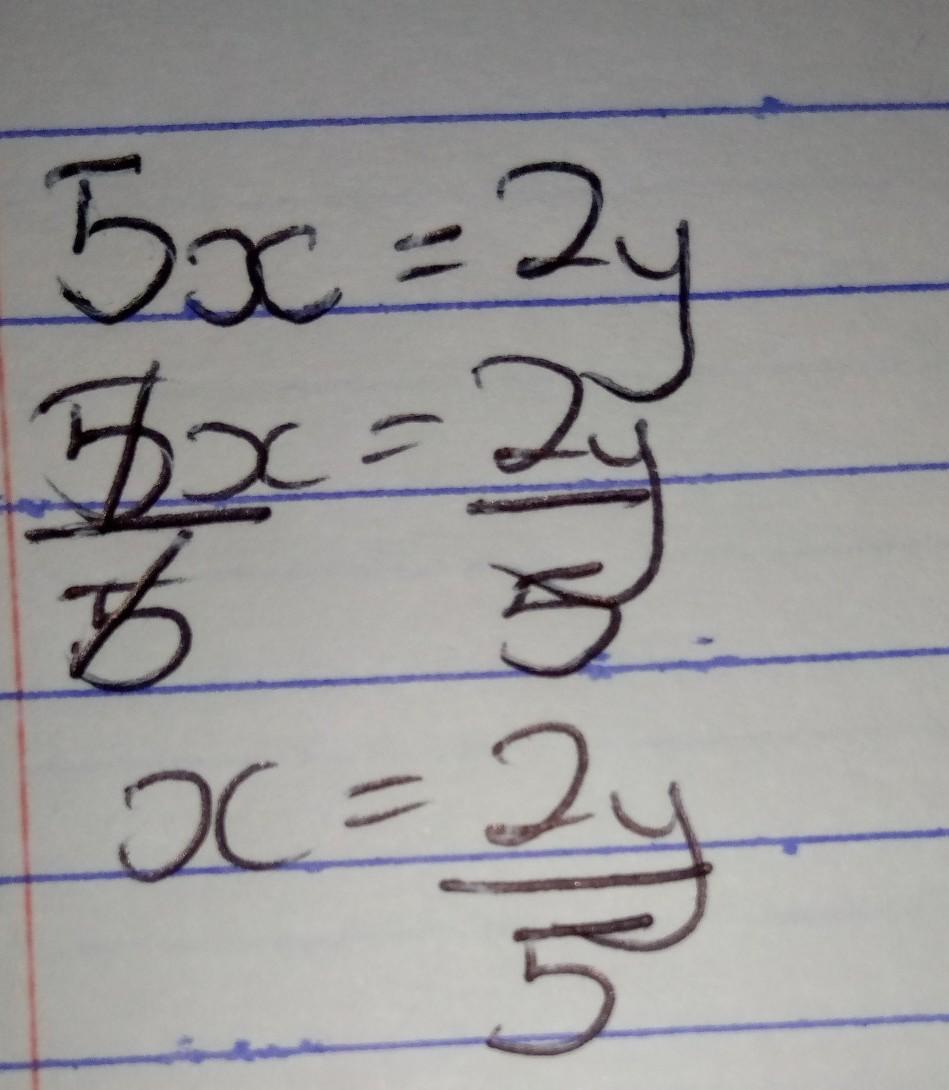 5x = 2y
5x/5 = 2y/5
x = 2y/5